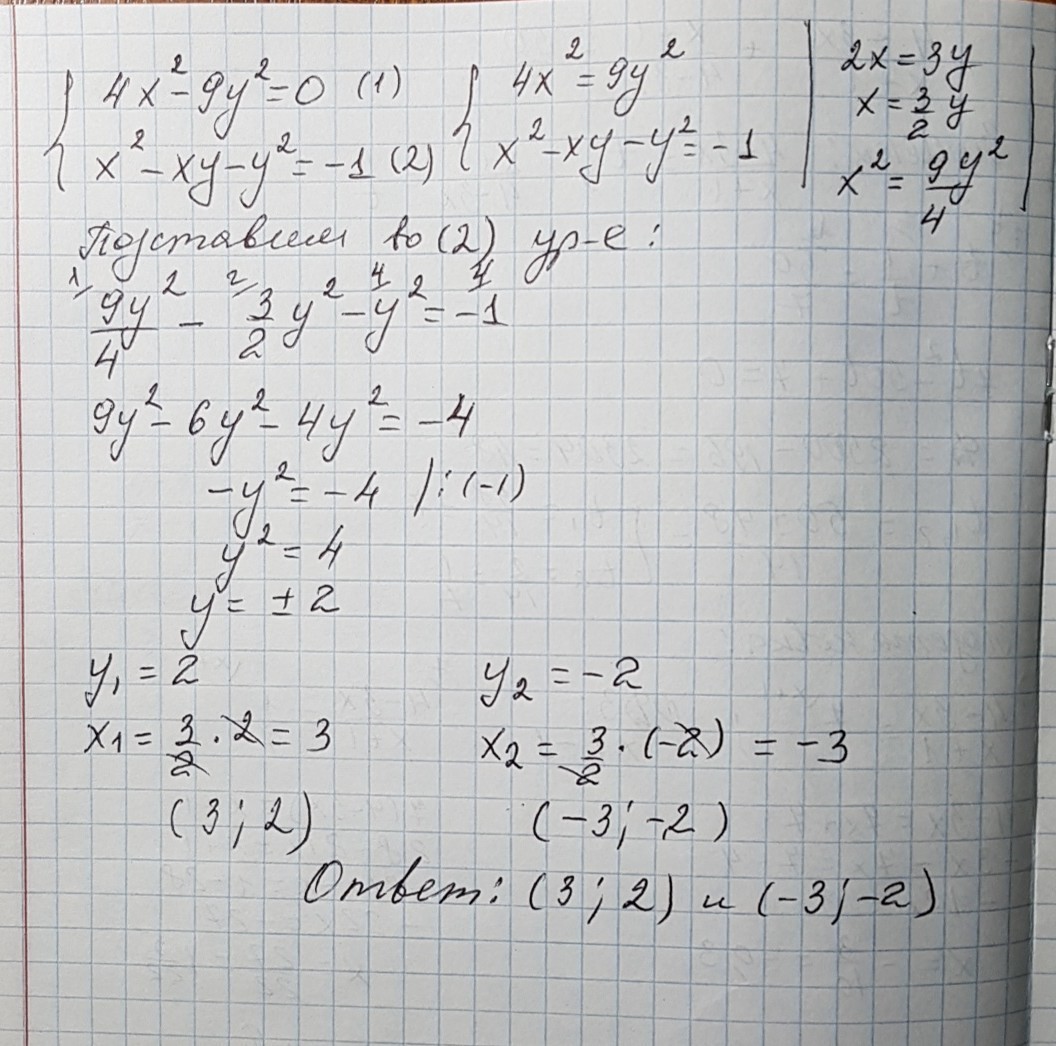 4x² - 9y² = 0 (1)
x² - xy - y² = -1 (2)
4x² = 9y²
x² - xy - y² = -1
2x = 3y
x = 3/2 y
x² = 9y²/4
Подставим во (2) ур-е:
1/ 9y²/4 - 2/ 3/2 y² - 4/ y² = 4/ -1
9y² - 6y² - 4y² = -4
-y² = -4 /:(-1)
y² = 4
y = ±2
y₁ = 2
x₁ = 3/2 · 2 = 3
(3; 2)
y₂ = -2
x₂ = 3/2 · (-2) = -3
(-3; -2)
Ответ: (3; 2) и (-3; -2)